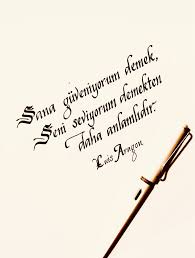 Sana güveniyorum demek,
Seni seviyorum demekten
daha anlamlıdır.
Luis Aragon